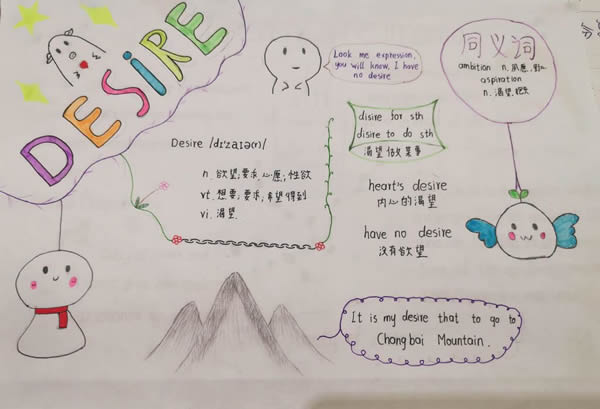 DESIRE
Look me expression,
you will know, I have
no desire
同义词
ambition n.夙愿,野心
aspiration
n.渴望,抱负
disire for sth
disire to do sth
渴望做某事
Desire /dɪ'zaɪə(r)/
n.欲望;要求,心愿;性欲
vt.想要;要求;希望得到
vi.渴望
heart's desire
内心的渴望
have no desire
没有欲望
It is my desire that to go to
Changbai Mountain.